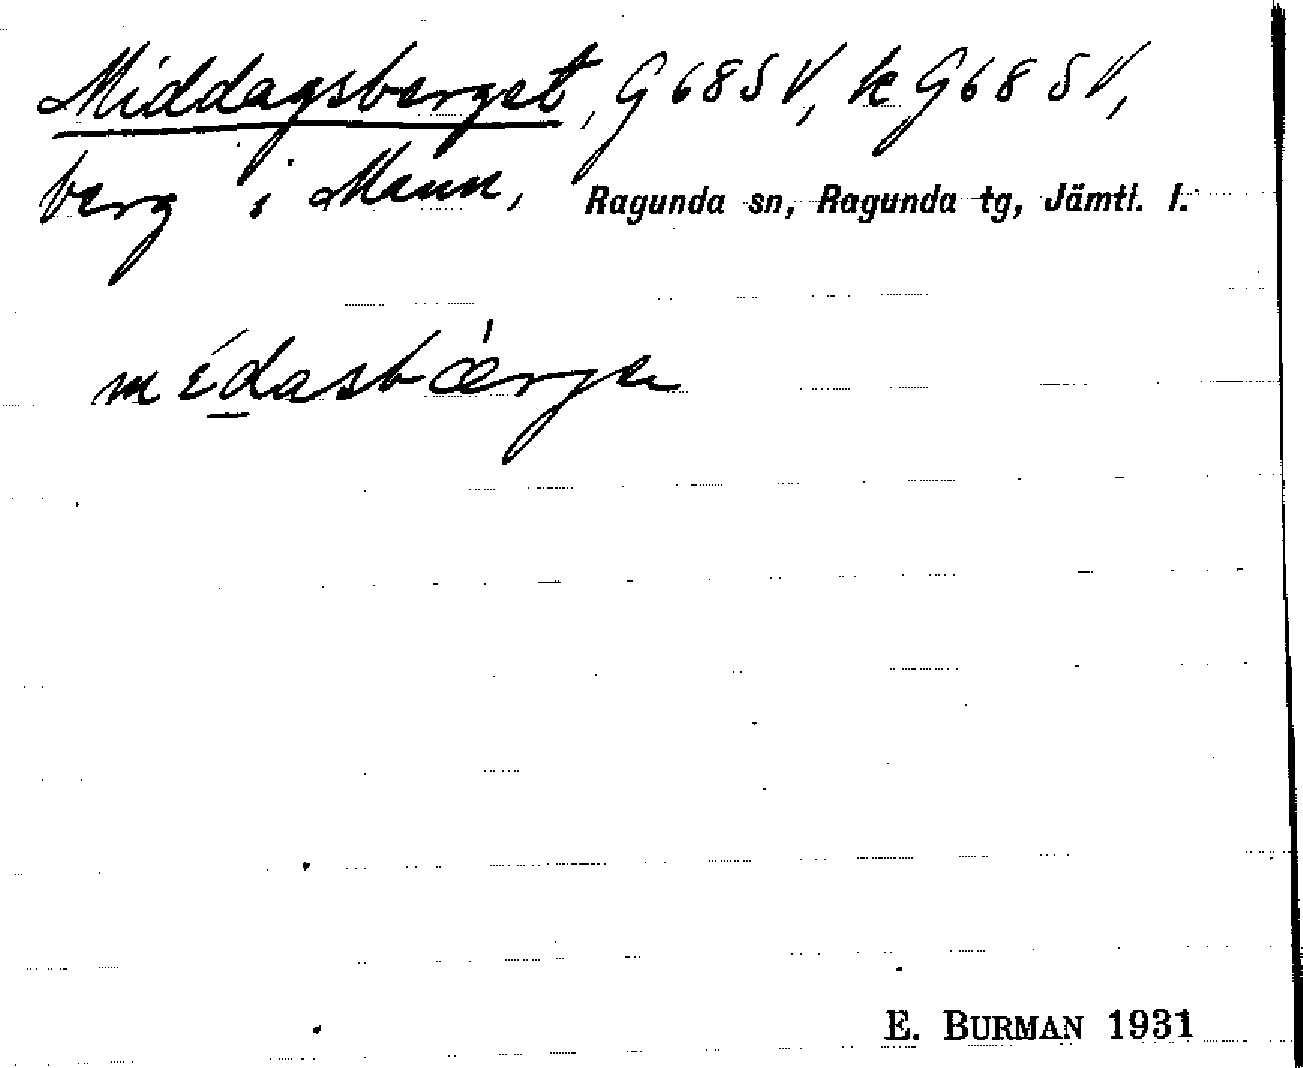 Middagsberget, G68SV, k G68SV,
berg i Mann, Ragunda sn, Ragunda tg, Jämtl. l.
médasbǽrjen
E. BURMAN 1931